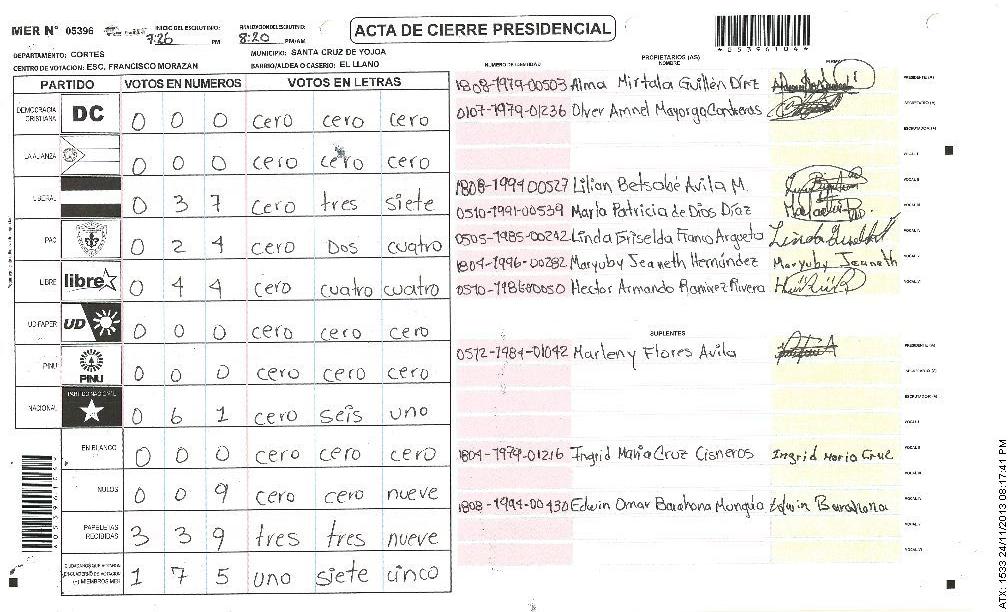 MER N° 05396
INICIO DEL ESCRUTINIO: 7:26 PM
FINALIZACION DEL ESCRUTINIO: 8:20 PM/AM
ACTA DE CIERRE PRESIDENCIAL
4053961044
DEPARTAMENTO: CORTES
MUNICIPIO: SANTA CRUZ DE YOJOA
CENTRO DE VOTACION: ESC. FRANCISCO MORAZAN
BARRIO/ALDEA O CASERIO: EL LLANO
PARTIDO VOTOS EN NUMEROS VOTOS EN LETRAS
DEMOCRACIA CRISTIANA DC 0 0 0 cero cero cero
LA ALIANZA 0 0 0 cero cero cero
LIBERAL 0 3 7 cero tres siete
PAC 0 2 4 cero Dos cuatro
LIBRE libre 0 4 4 cero cuatro cuatro
UD FAPER UD 0 0 0 cero cero cero
PINU PINU 0 0 0 cero cero cero
NACIONAL PARTIDO NACIONAL 0 6 1 cero seis uno
EN BLANCO 0 0 0 cero cero cero
NULOS 0 0 9 cero cero nueve
PAPELETAS RECIBIDAS 3 3 9 tres tres nueve
(+) MIEMBROS MER 1 7 5 uno siete cinco
NUMERO DE IDENTIDAD PROPIETARIOS (AS) NOMBRE FIRMA
1808-1979-00503 Alma Mirtala Guillén Díaz PRESIDENTE (A)
0107-1979-01236 Olver Amnel Mayorga Contreras SECRETARIO (A)
ESCRUTADOR (A)
VOCAL I
1808-1994 00527 Lilian Betsabé Avila M. VOCAL II
0510-1991-00539 Marla Patricia de Dios Díaz VOCAL III
0505-1985-00242 Linda Griselda Franco Argueta VOCAL IV
1804-1996-00282 Maryuby Jeaneth Hernández Maryuby Jeaneth VOCAL V
Hector Armando Ramirez Rivera
SUPLENTES
0512-1984-01042 Marleny Flores Avila PRESIDENTE (A)
SECRETARIO (A)
ESCRUTADOR (A)
VOCAL I
1804-1979-01216 Ingrid Maria Cruz Cisneros Ingrid Maria Cruz VOCAL II
VOCAL III
1808-1994-00430 Edwin Omar Barahona Munguia Edwin Barahona VOCAL IV
VOCAL V
VOCAL VI
ATX: 1533 24/11/2013 08:17:41 PM